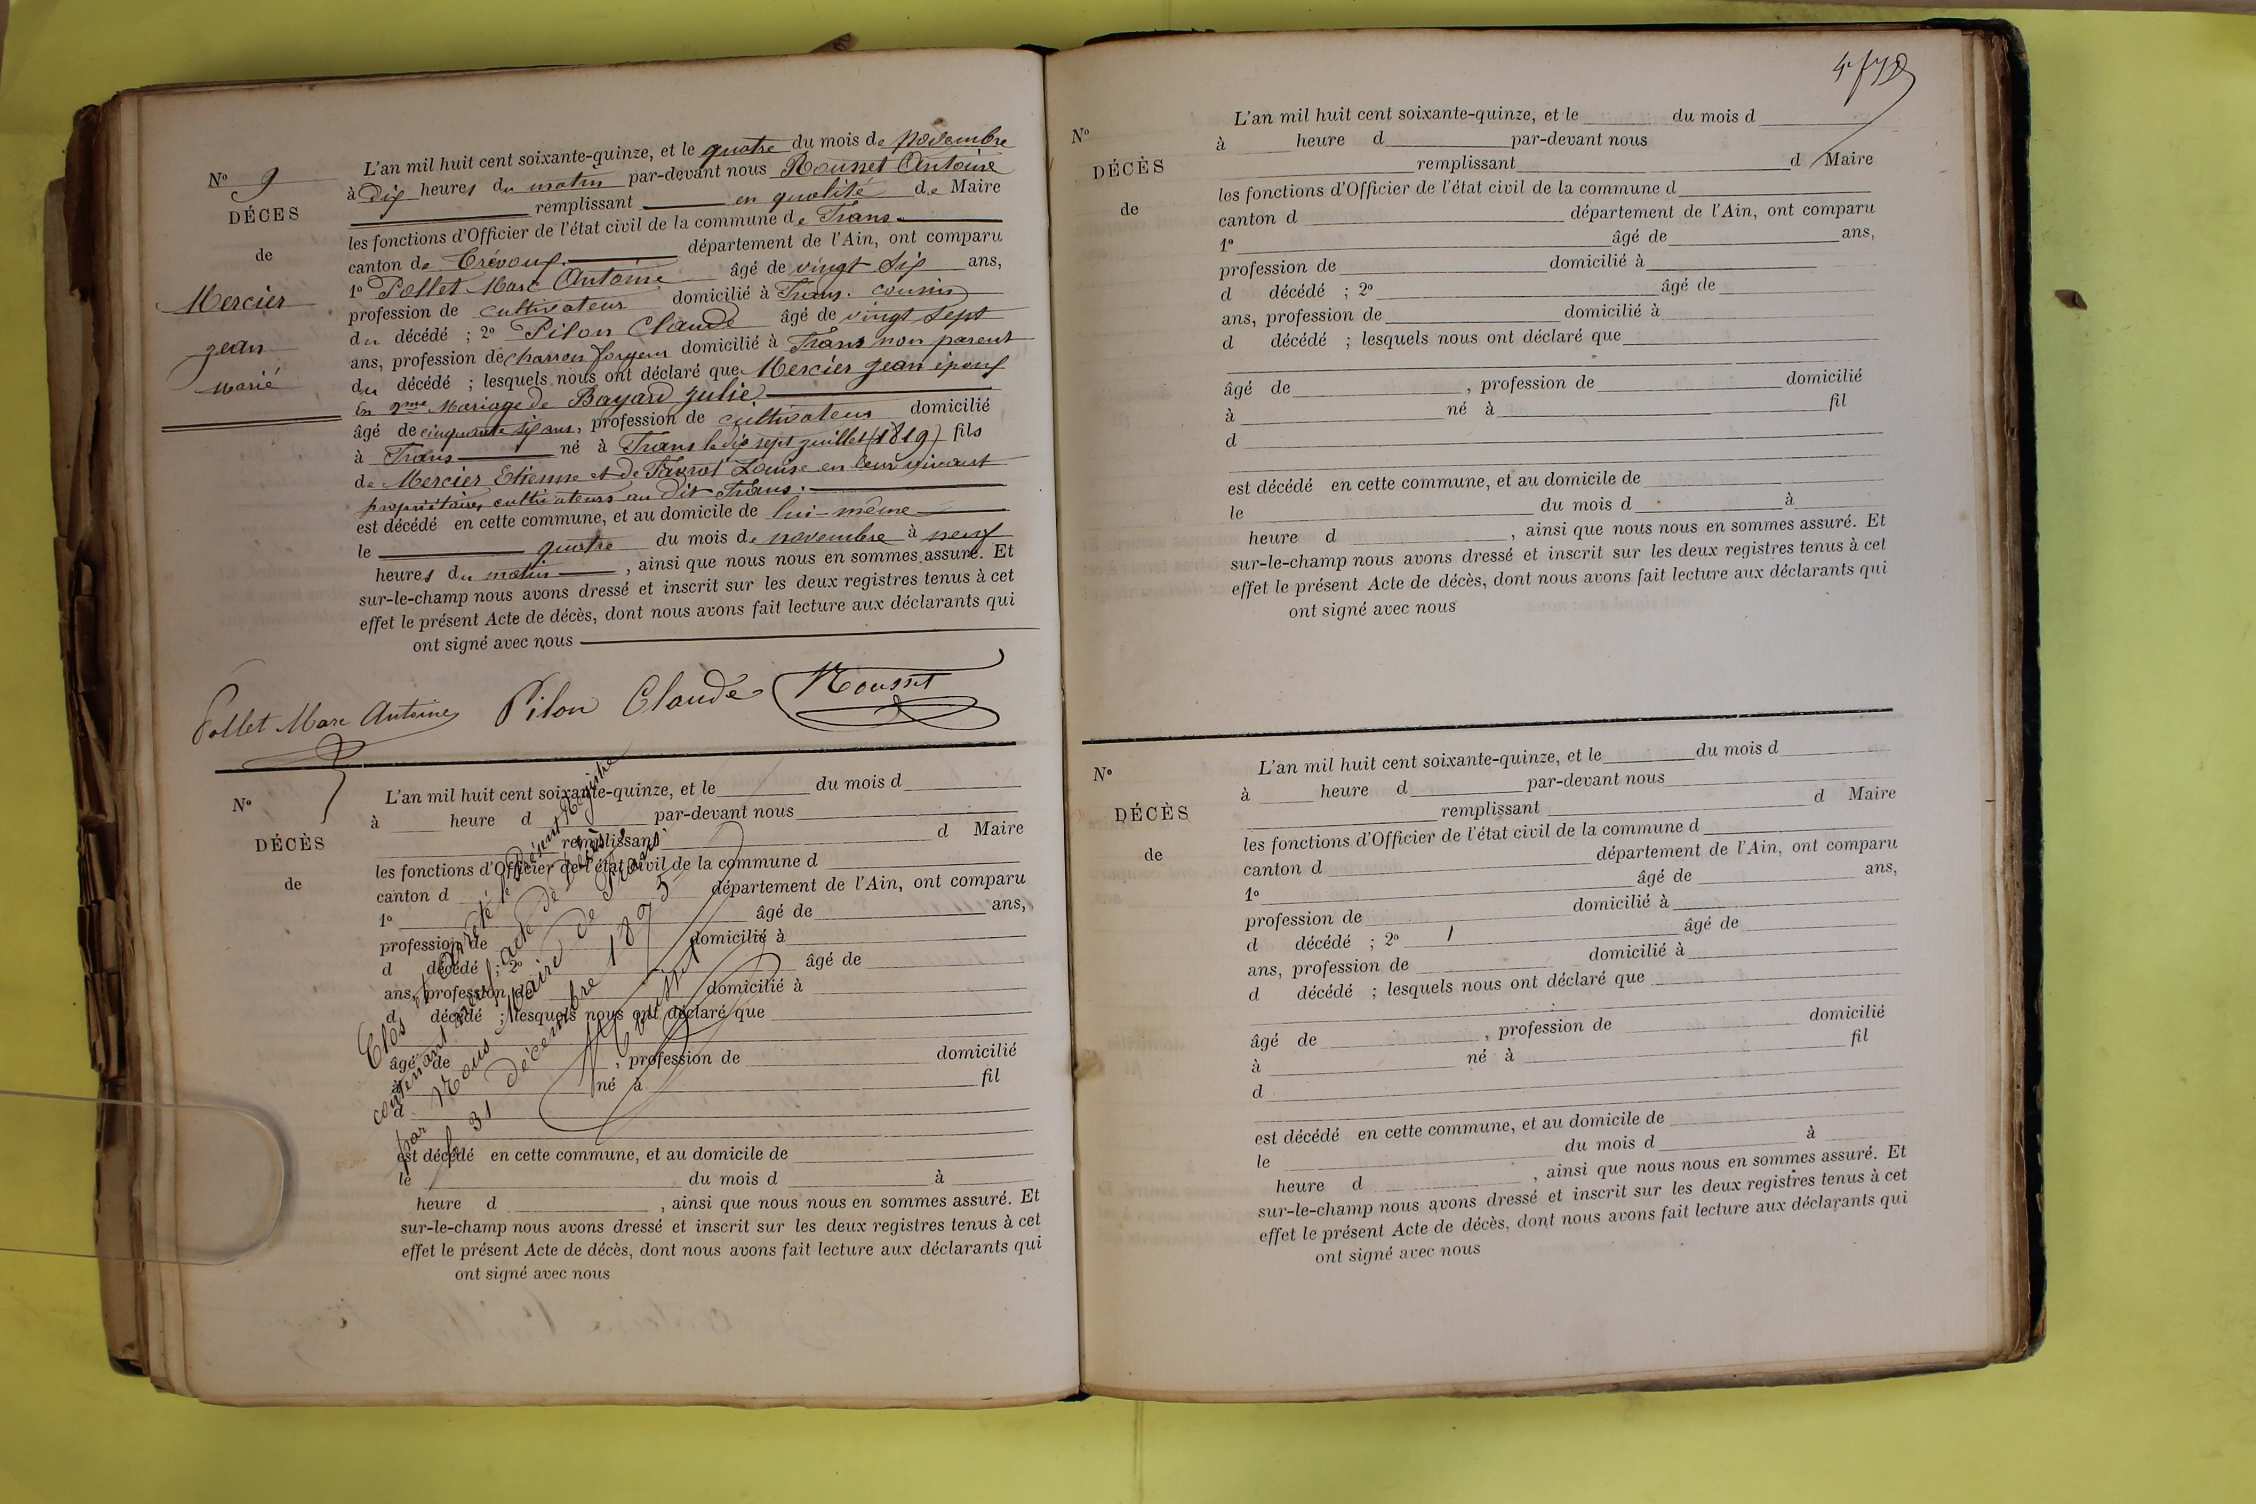 N° 9
DÉCES
de
Mercier
jean
marié
L'an mil huit cent soixante-quinze, et le quatre du mois de Novembre
à Dix heures du matin par-devant nous Rousset Antoine
remplissant en qualité de Maire
les fonctions d'Officier de l'état civil de la commune de Frans
canton de Trévoux département de l'Ain, ont comparu
1° Pollet Marc Antoine âgé de vingt Six ans,
profession de cultivateur domicilié à Frans. cousin
du décédé ; 2° Pilon Claude âgé de vingt Sept
ans, profession de charron forgeur domicilié à Frans non parent
du décédé ; lesquels nous ont déclaré que Mercier jean époux
en 2me Mariage de Bayard julie
âgé de cinquante six ans, profession de cultivateur domicilié
à Frans né à Frans le dix sept juillet (1819) fils
de Mercier Etienne et de Louise en leur vivant
propriétaires cultivateurs au dit Frans.
est décédé en cette commune, et au domicile de lui-même
le quatre du mois de novembre à neuf
heures du matin , ainsi que nous nous en sommes assuré. Et
sur-le-champ nous avons dressé et inscrit sur les deux registres tenus à cet
effet le présent Acte de décès, dont nous avons fait lecture aux déclarants qui
ont signé avec nous
Pollet Marc Antoine Pilon Claude Rousset
N°
DÉCÈS
de
L'an mil huit cent soixante-quinze, et le du mois d
à heure d par-devant nous
remplissant d Maire
les fonctions d'Officier de l'état civil de la commune d
canton d département de l'Ain, ont comparu
1° âgé de ans,
profession de domicilié à
d décédé ; 2° âgé de
ans, profession de domicilié à
d décédé ; lesquels nous ont déclaré que
âgé de , profession de domicilié
à né à fil
d
est décédé en cette commune, et au domicile de
le du mois d à
heure d , ainsi que nous nous en sommes assuré. Et
sur-le-champ nous avons dressé et inscrit sur les deux registres tenus à cet
effet le présent Acte de décès, dont nous avons fait lecture aux déclarants qui
ont signé avec nous
Clos et arrêté le présent Registre
contenant neuf acte de décès
par Nous Maire de Frans
le 31 décembre 1875
Rousset
N°
DÉCÈS
de
L'an mil huit cent soixante-quinze, et le du mois d
à heure d par-devant nous
remplissant d Maire
les fonctions d'Officier de l'état civil de la commune d
canton d département de l'Ain, ont comparu
1° âgé de ans,
profession de domicilié à
d décédé ; 2° âgé de
ans, profession de domicilié à
d décédé ; lesquels nous ont déclaré que
âgé de , profession de domicilié
à né à fil
d
est décédé en cette commune, et au domicile de
le du mois d à
heure d , ainsi que nous nous en sommes assuré. Et
sur-le-champ nous avons dressé et inscrit sur les deux registres tenus à cet
effet le présent Acte de décès, dont nous avons fait lecture aux déclarants qui
ont signé avec nous
N°
DÉCÈS
de
L'an mil huit cent soixante-quinze, et le du mois d
à heure d par-devant nous
remplissant d Maire
les fonctions d'Officier de l'état civil de la commune d
canton d département de l'Ain, ont comparu
1° âgé de ans,
profession de domicilié à
d décédé ; 2° âgé de
ans, profession de domicilié à
d décédé ; lesquels nous ont déclaré que
âgé de , profession de domicilié
à né à fil
d
est décédé en cette commune, et au domicile de
le du mois d à
heure d , ainsi que nous nous en sommes assuré. Et
sur-le-champ nous avons dressé et inscrit sur les deux registres tenus à cet
effet le présent Acte de décès, dont nous avons fait lecture aux déclarants qui
ont signé avec nous